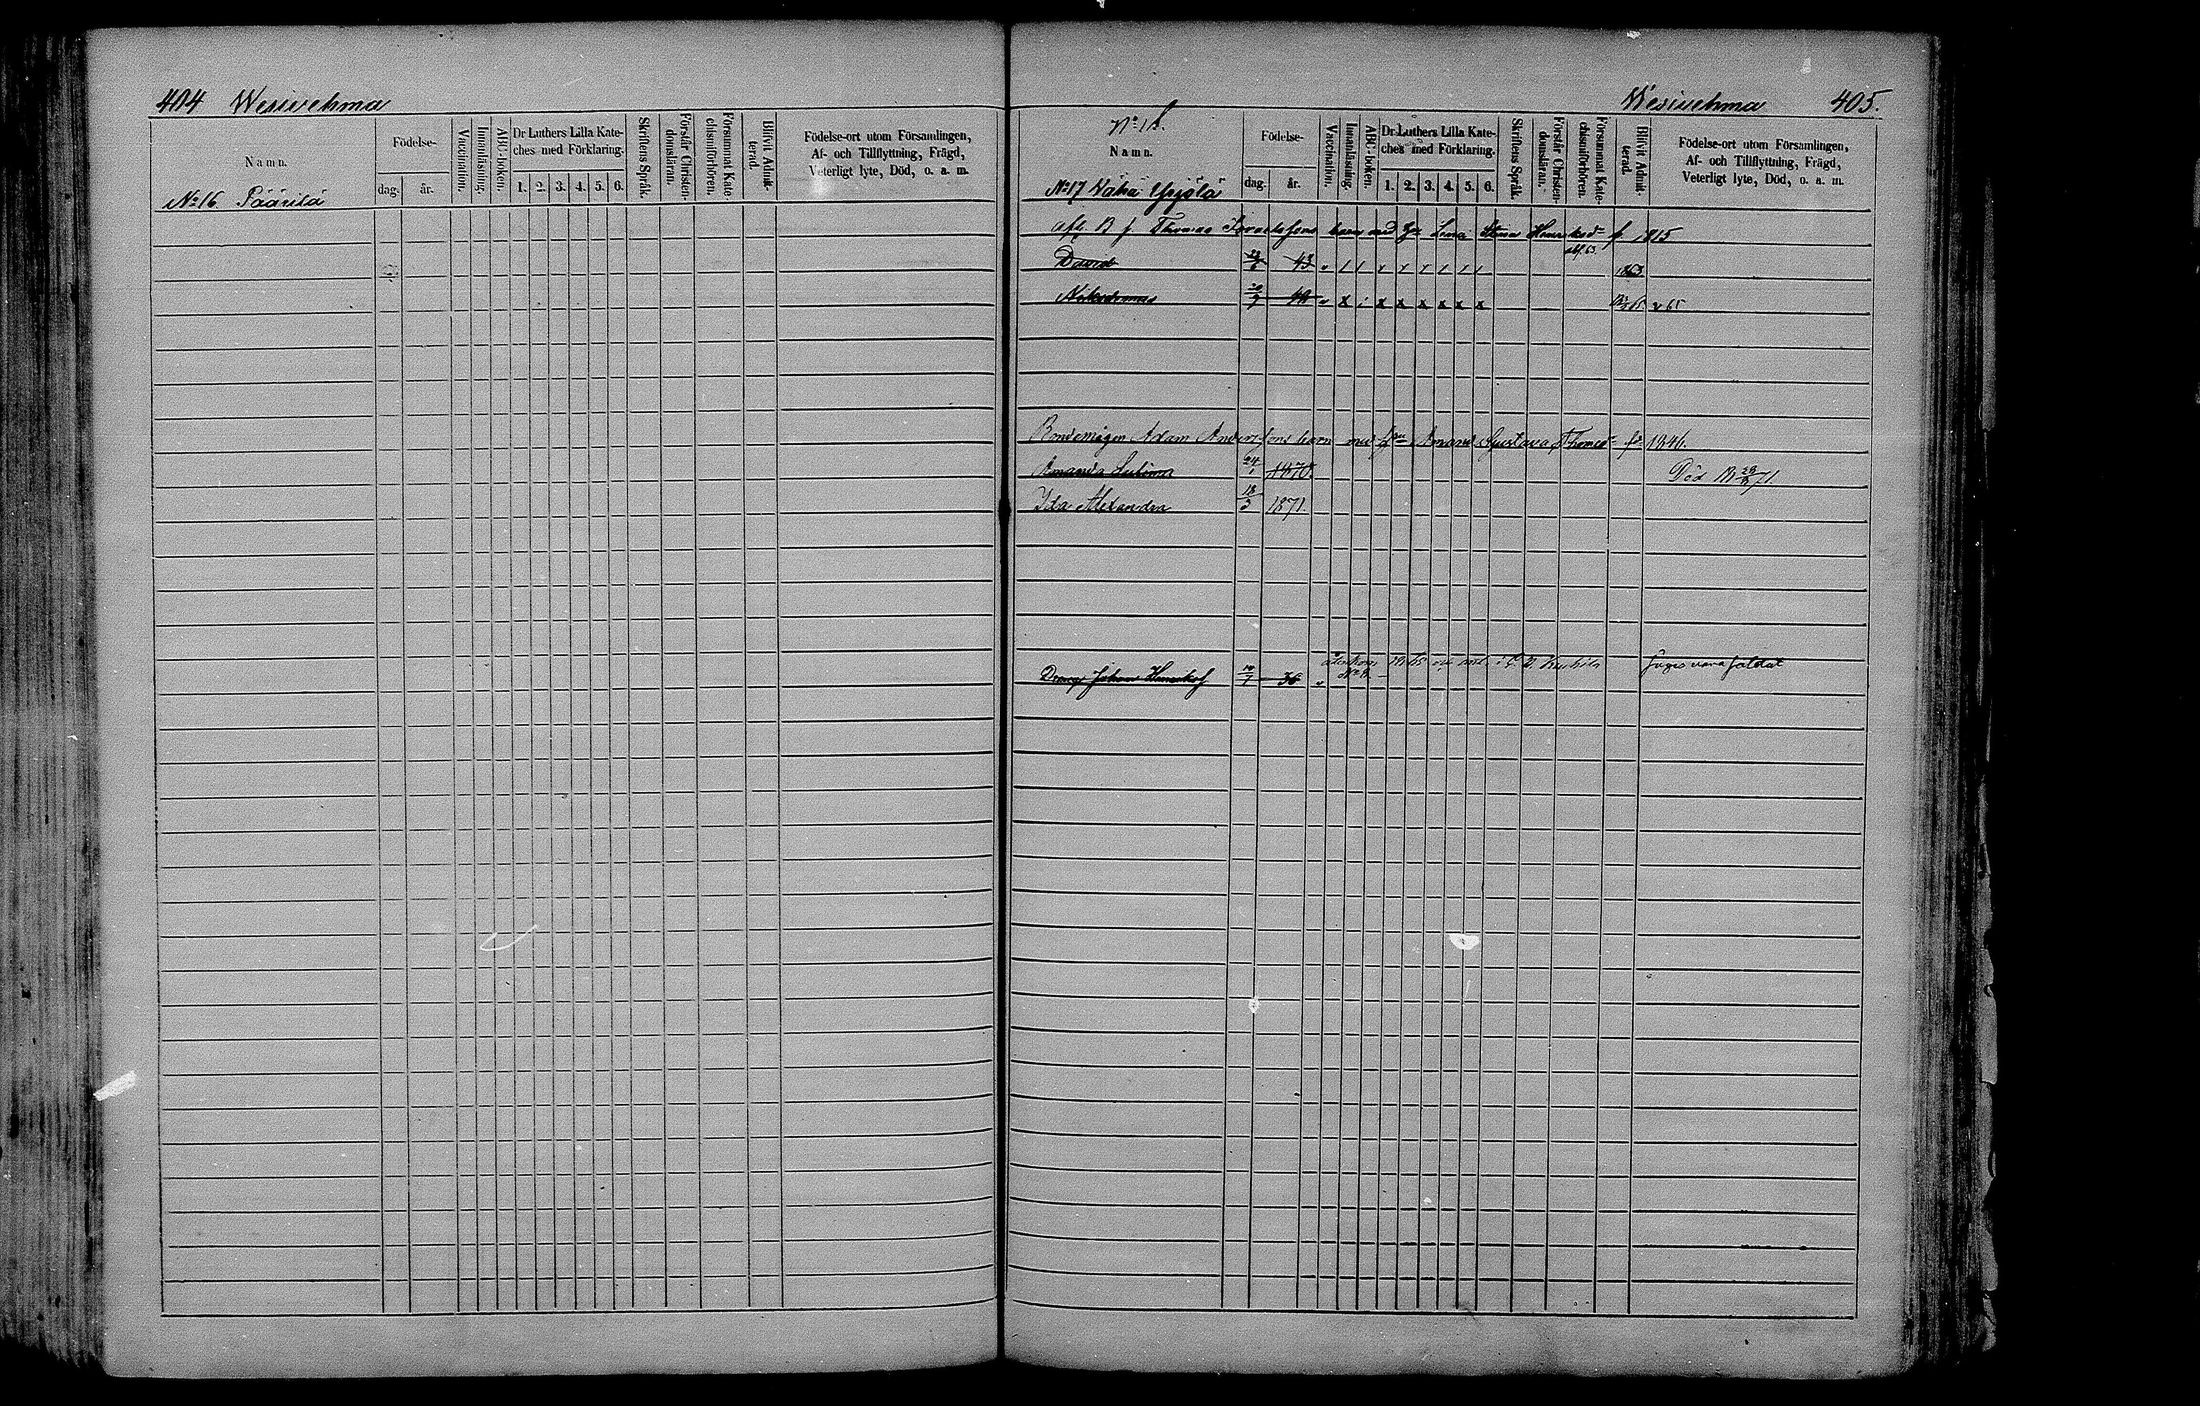 404 Wesivehma
Namn.
Födelse-
dag.
år.
Vaccination.
Innanläsning.
ABC-boken.
Dr Luthers Lilla Kate-
ches med Förklaring.
1. 2. 3. 4. 5. 6.
Skriftens Språk.
Förstår Christen-
domsläran.
Försummat Kate-
chismiförhören.
Blifvit Admit-
terad.
Födelse-ort utom Församlingen,
Af- och Tillflyttning, Frägd,
Veterligt lyte, Död, o. a. m.
No 16 Päärilä
Wesivehma 405.
Namn.
Födelse-
dag.
år.
Vaccination.
Innanläsning.
ABC-boken.
Dr Luthers Lilla Kate-
ches med Förklaring.
1. 2. 3. 4. 5. 6.
Skriftens Språk.
Förstår Christen-
domsläran.
Försummat Kate-
chismiförhören.
Blifvit Admit-
terad.
Födelse-ort utom Församlingen,
Af- och Tillflyttning, Frägd,
Veterligt lyte, Död, o. a. m.
No 17 Vähä Yrjölä
Afl. B f Thomas barn med Lena Stina Henriksd f. 1815
David 43 1863
Nikodemus 48 65
Bondemågen Adam Anderssons barn med Amanda Gustava Thomasd f. 1846.
Amanda 24/1 1870 Död 71
Ida Alexandra 18/3 1871
Dräng Johan Henriksf 36 soldat